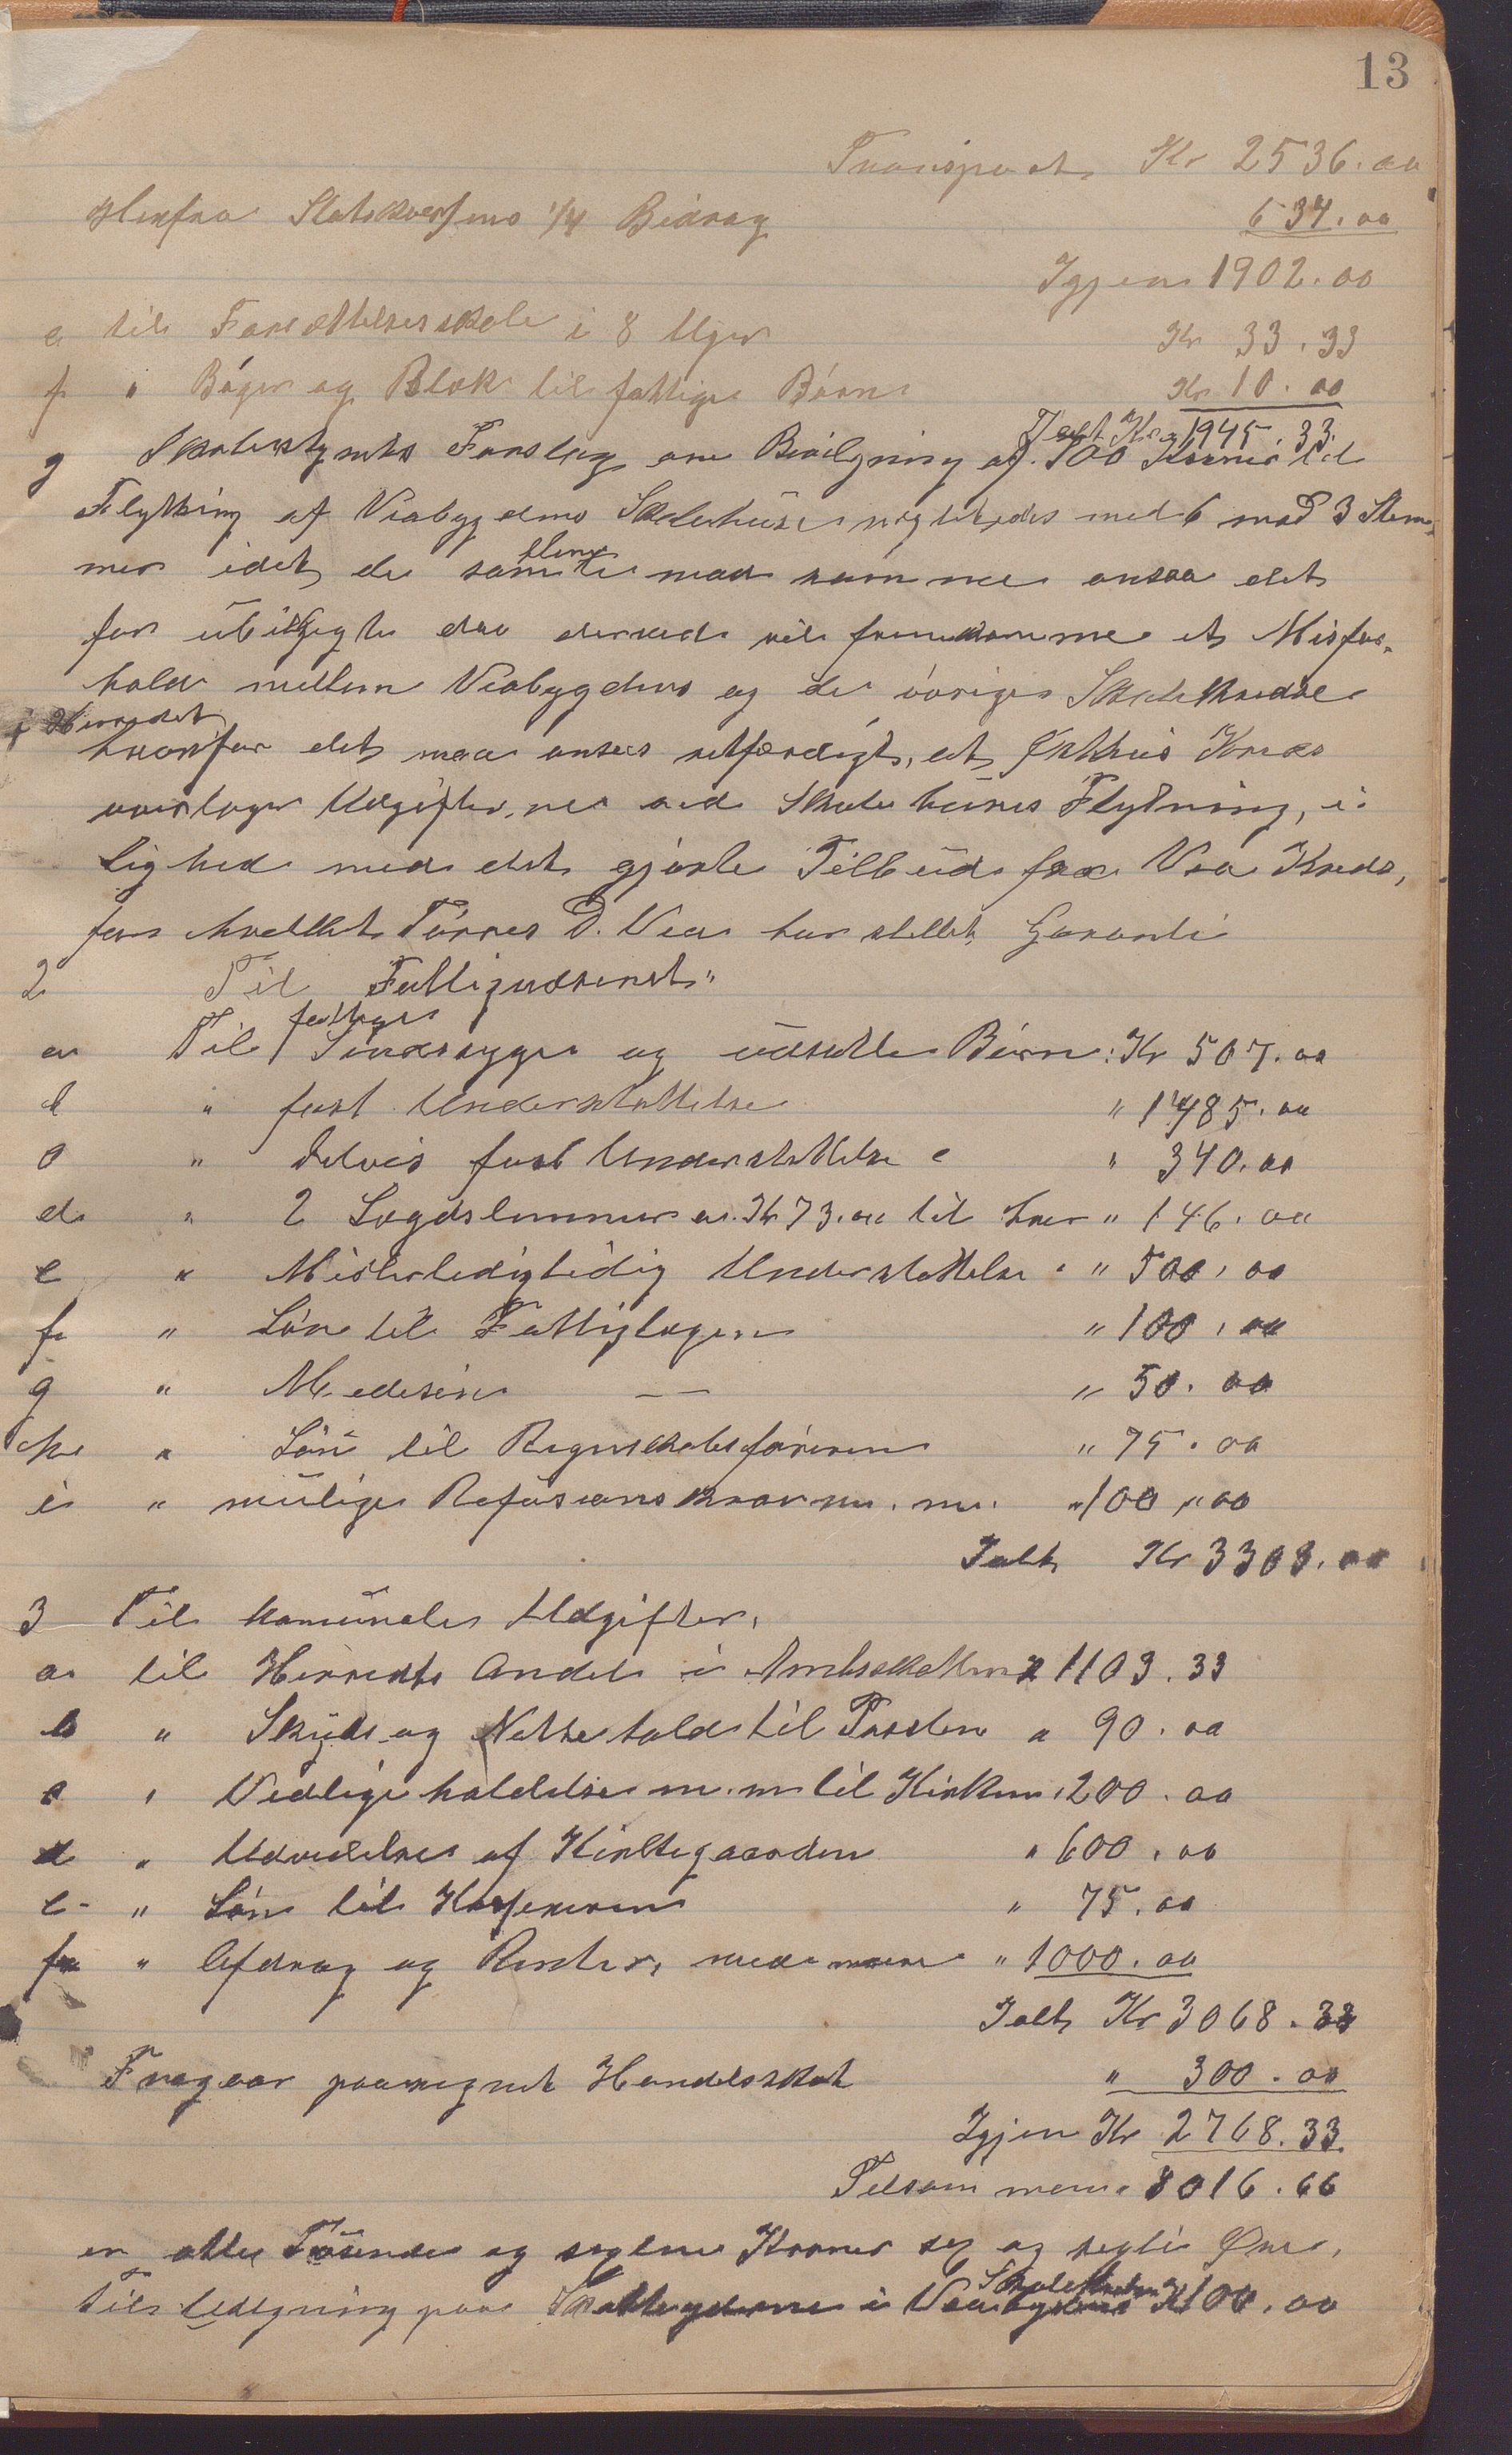 13
Transport Kr 2536.00
Herfra Statskassens 1/4 Bidrag 634.00
Igjen 1902.00
e til Fortsættelsesskole i 8 Uger Kr 33.33
f " Bøger og Blæk til fattige Børn Kr 10.00
Ialt Kr 1945.33.
g Skolestyrets Forslag om Bevilgning af 700 Kroner til
Flytning af Veabygdens Skolehus negtedes med 6 mod 3 Stem-
mer idet de som stemte mod samme ansaa det
for ubilligt da derved vil fremkomme et Misfor-
hold mellem Veabygdens og de øvrige Skolekredse
i Herredet
hvorfor det maa ansees retfærdigt, at Kreds
overtager Udgifterne ved Skolehusets Flytning, i
Lighed med det gjorte Tilbud fra Vea Kreds,
for hvilket Tørres D. Vea har stillet Garanti
2 Til Fattigvæsenet"
a Til fattige Sindssyge og udsatte Børn: Kr 507.00
b " fast Understøttelse " 1485.00
c " delvis fast Understøttelse " 340.00
d " 2 Lægdslemmer a. Kr 73.00 til hver " 146.00
e " Misterledigtidig Understøttelse " 500.00
f " Løn til Fattiglægen " 100.00
g " Medesin — — " 50.00
h " Løn til Regnskabsføreren " 75.00
i " mulige Refusionskrav m. m. " 100.00
Ialt Kr 3303.00
3 Til komunale Udgifter,
a til Herredets Andel i Amtsskatten " 1103.33
b " Skyds og Nattehold til Presten " 90.00
c " Vedligeholdelse m. m til Kirken " 200.00
d " Udvidelse af Kirkegaarden " 600.00
e " Løn til Kasereren " 75.00
f " Afdrag og Renter, med mere " 1000.00
Ialt Kr 3068.33
Fragaar paaregnet Handelsskat " 300.00
Igjen Kr 2768.33.
Tilsammen 8016.66
er otte Tusende og sexten Kroner sex og sexti Øre,
Til Udligning paa Skatteyderne i Vea Skolekreds Kr 100.00